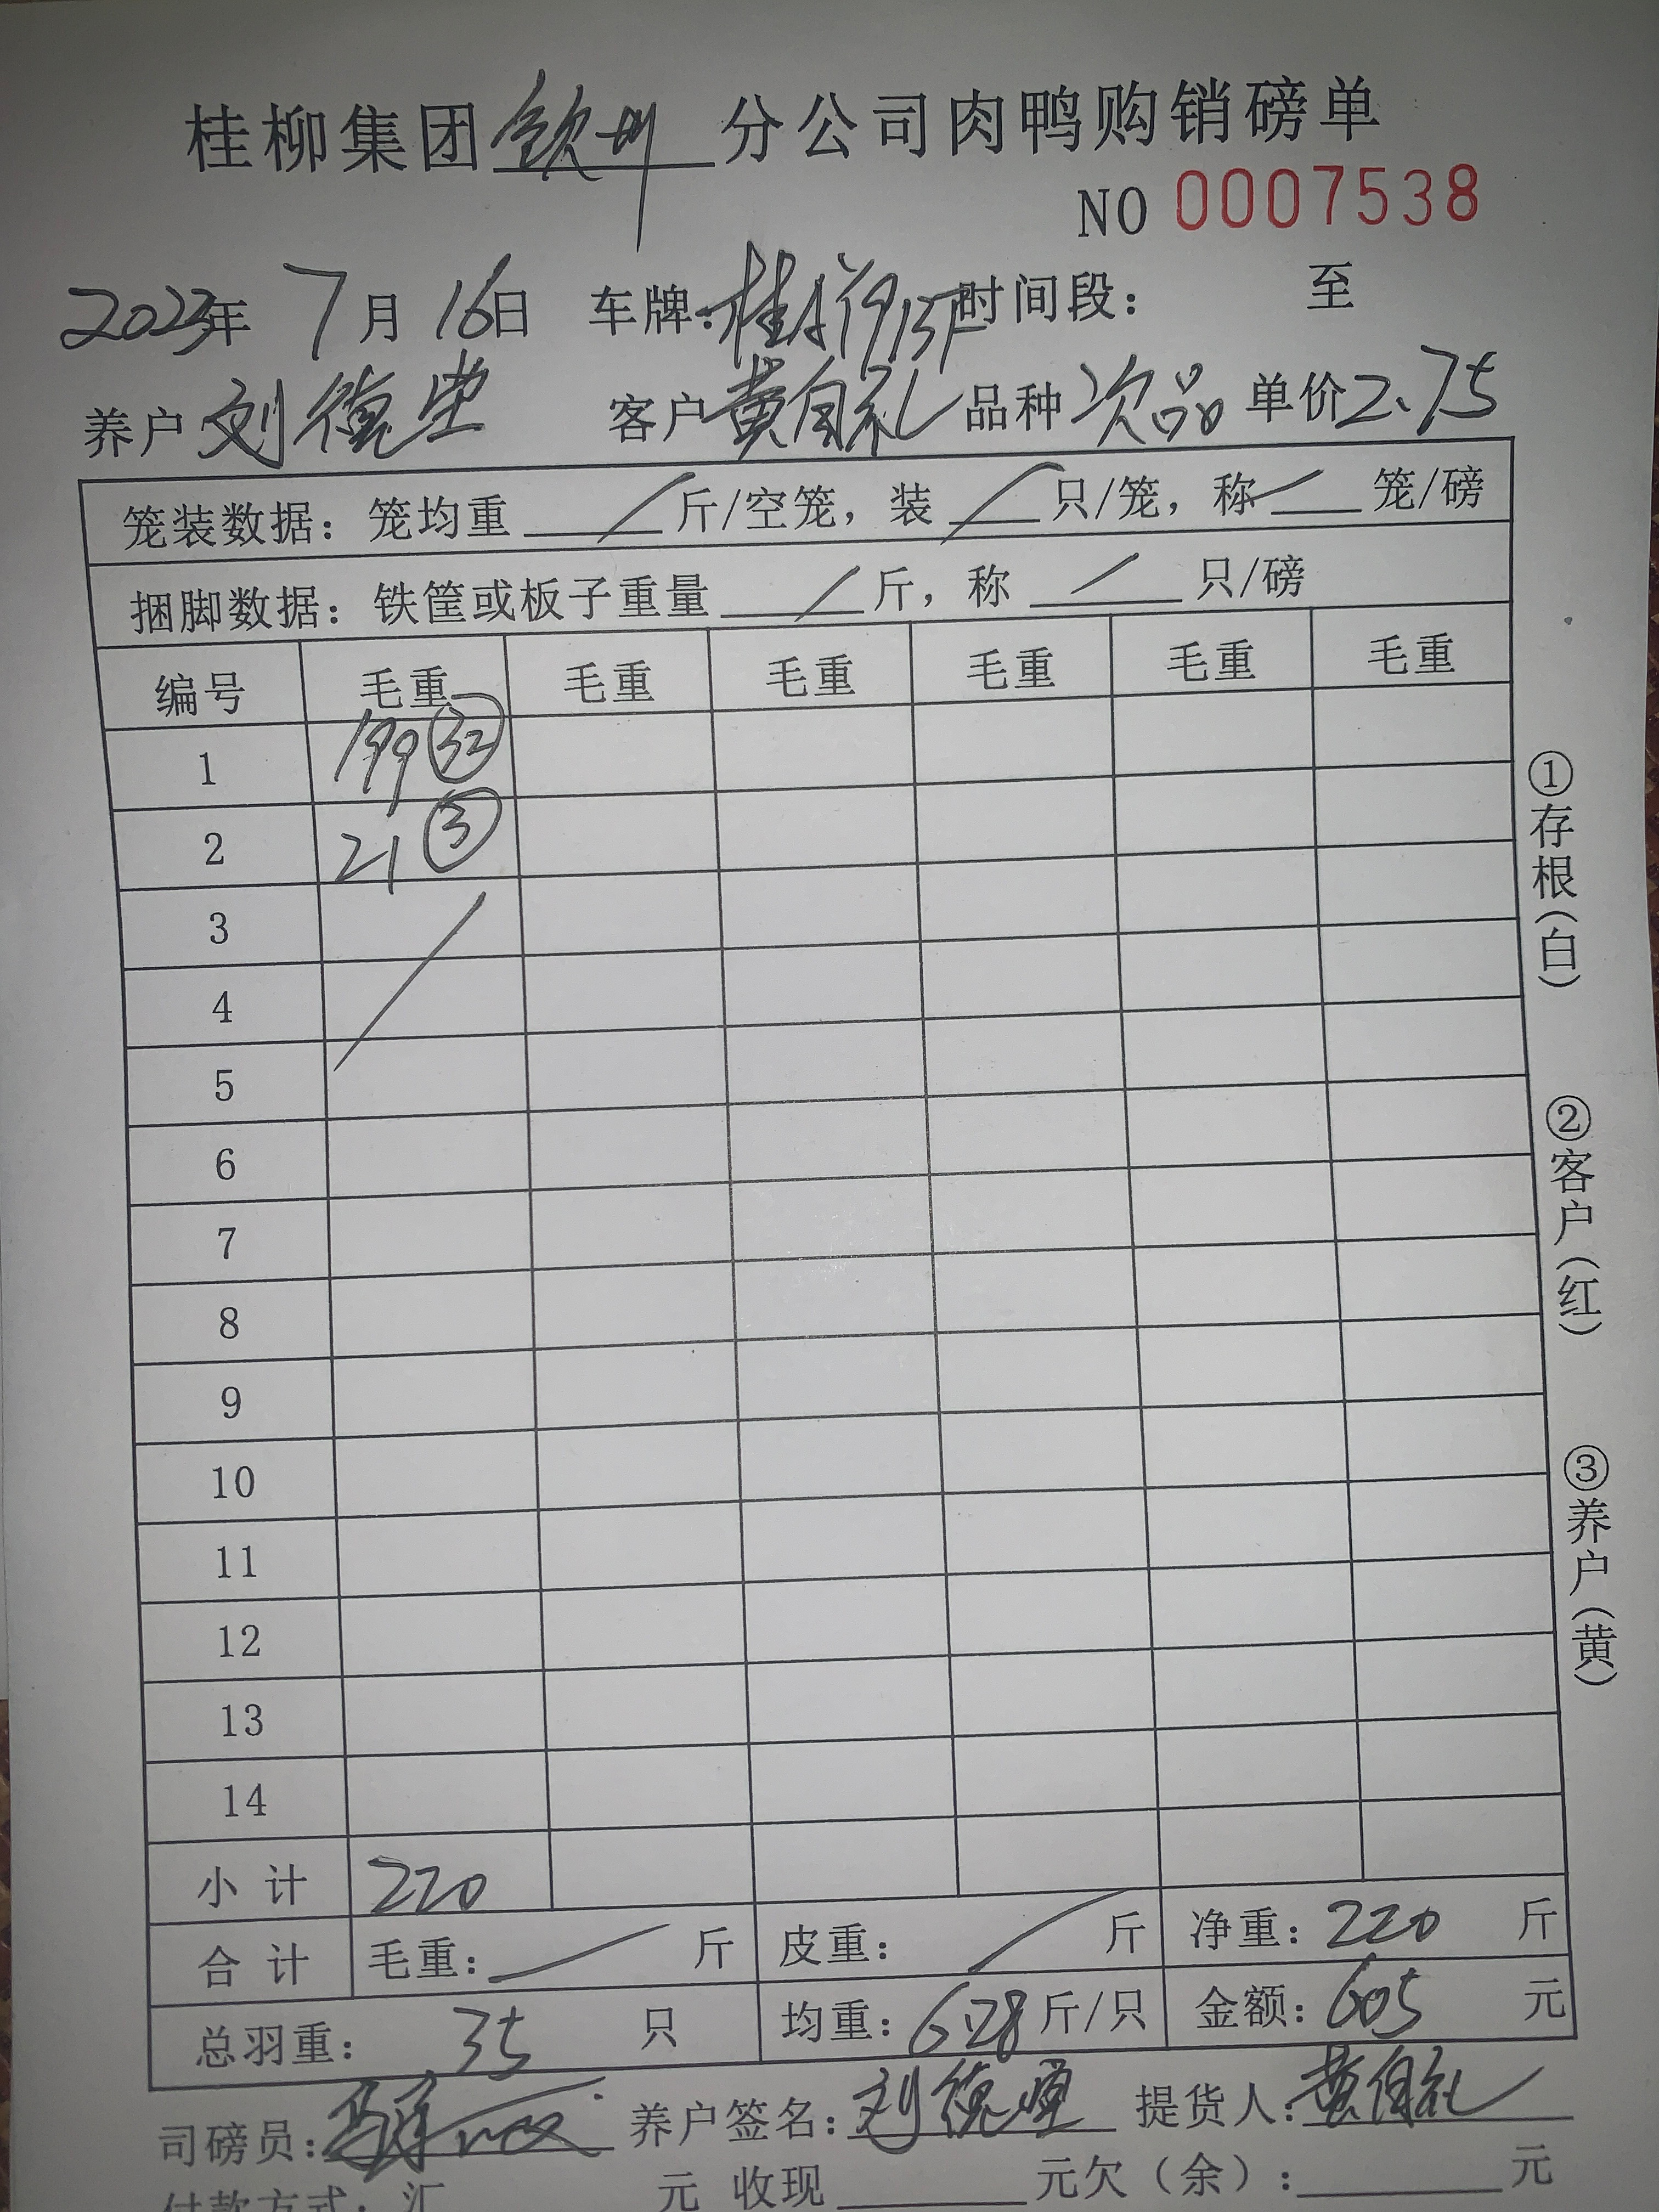 桂柳集团钦州分公司肉鸭购销磅单
NO 0007538
2023年 7月 16日 车牌: 时间段: 至
养户 刘德坚 客户 黄自礼 品种 次品 单价 2.75
笼装数据: 笼均重 / 斤/空笼, 装 / 只/笼, 称 / 笼/磅
捆脚数据: 铁筐或板子重量 / 斤, 称 / 只/磅
编号 毛重 毛重 毛重 毛重 毛重 毛重
1 199 ㉜
2 21 ③
3
4
5
6
7
8
9
10
11
12
13
14
小计 220
合计 毛重: / 斤 皮重: / 斤 净重: 220 斤
总羽重: 35 只 均重: 6.28 斤/只 金额: 605 元
司磅员: 养户签名: 刘德坚 提货人: 黄自礼
付款方式: 汇 元 收现 元欠(余): 元
①存根(白)
②客户(红)
③养户(黄)